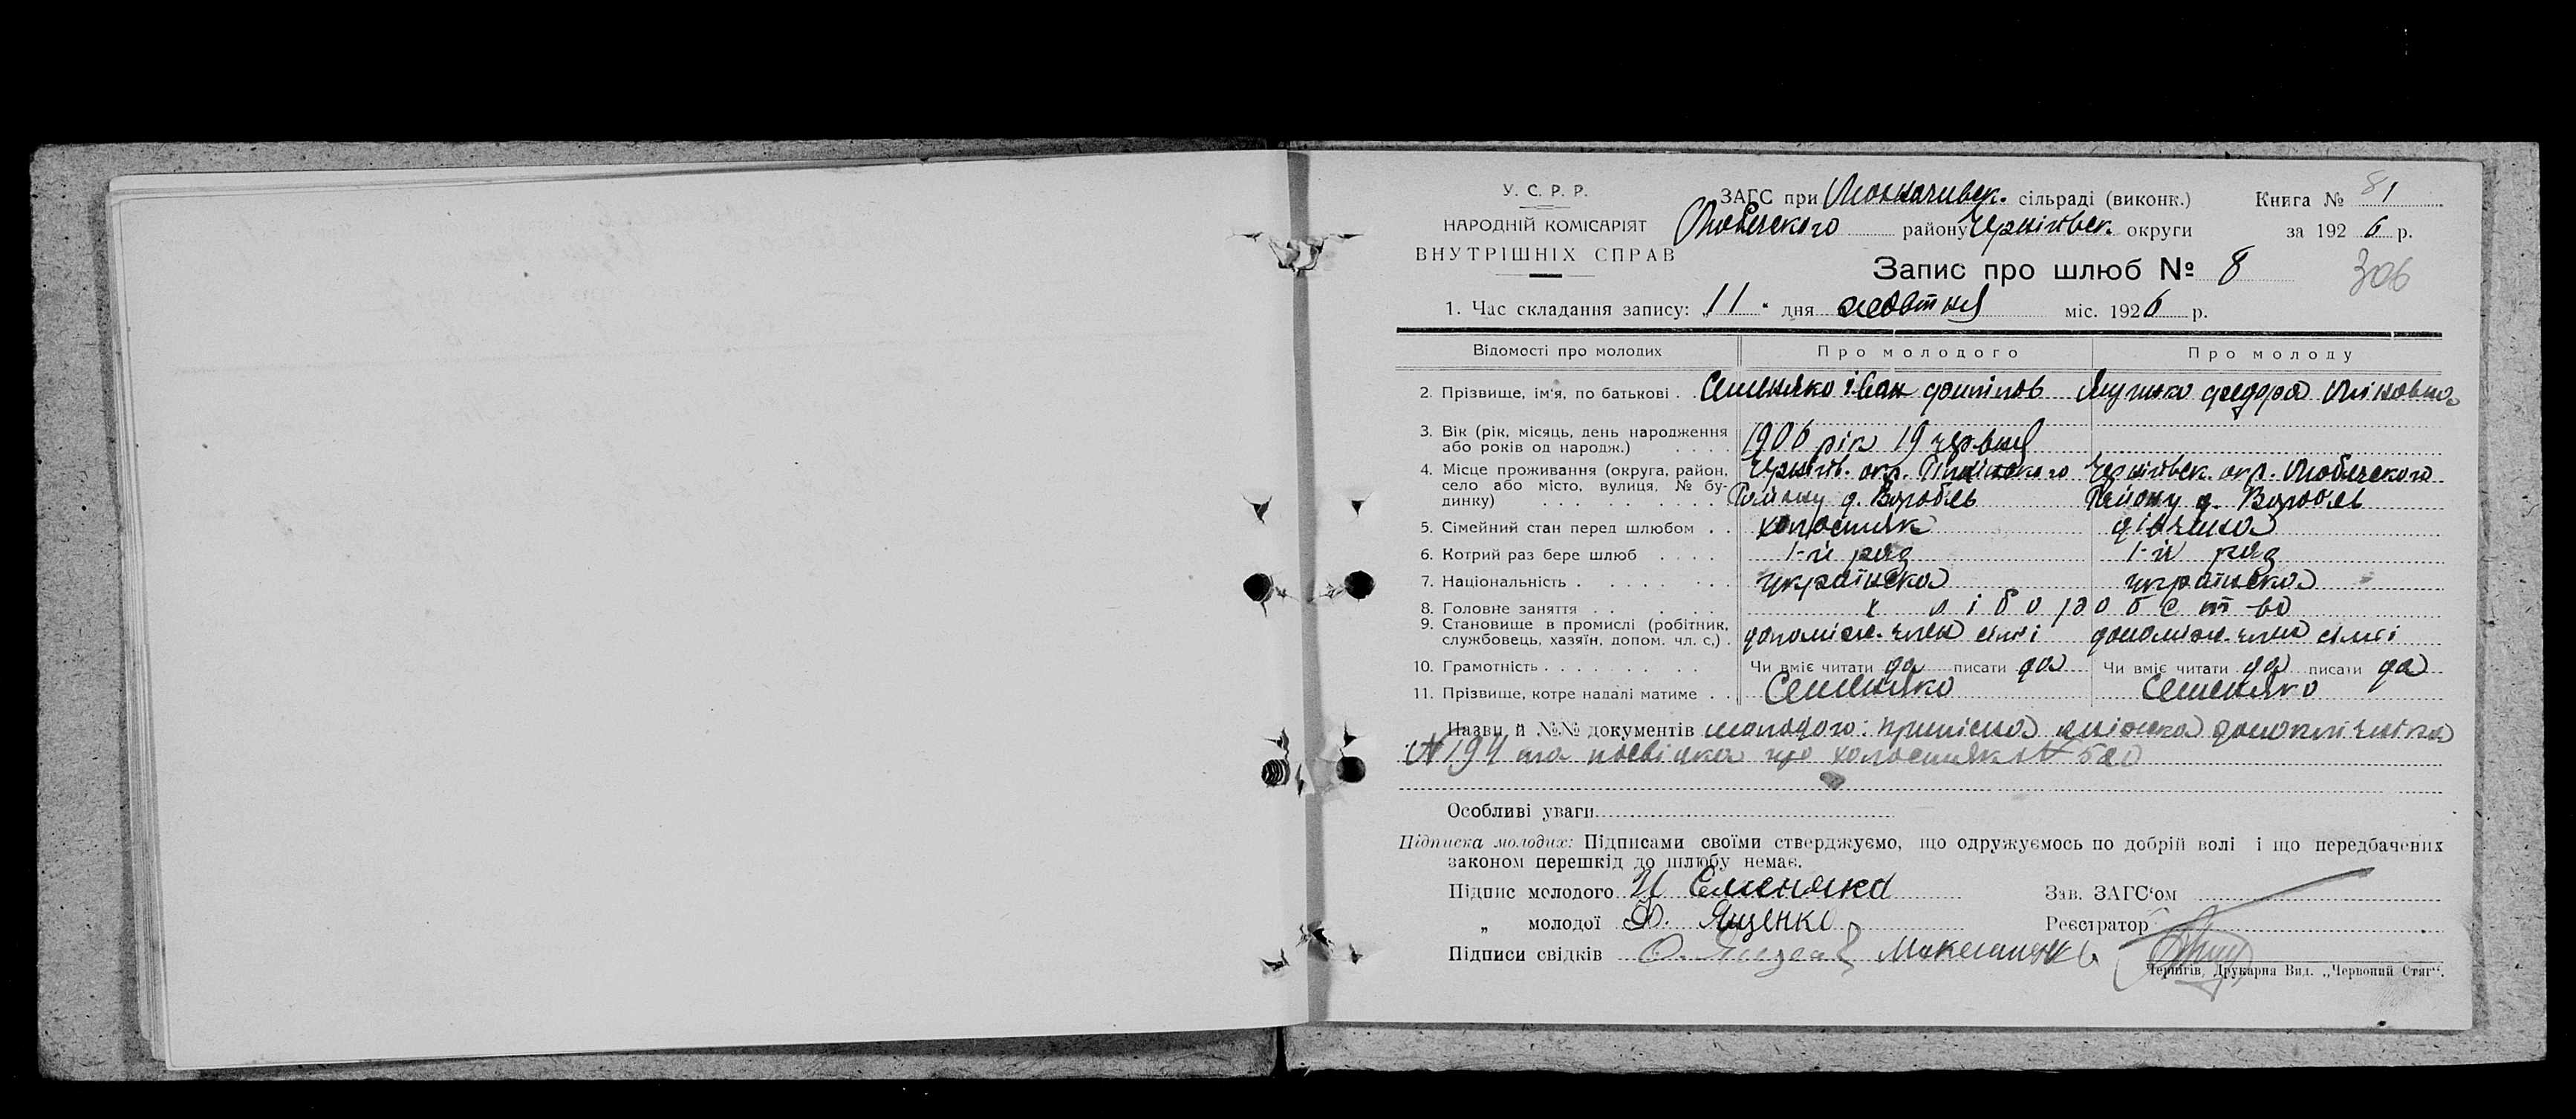 У. С. Р. Р.
НАРОДНІЙ КОМІСАРІЯТ
ВНУТРІШНІХ СПРАВ
ЗАГС при сільраді (виконк.)
Книга № 81
району Чернігівськ. округи
за 1926 р.
Запис про шлюб № 8
306
1. Час складання запису: „11" дня жовтня міс. 1926 р.
Відомості про молодих Про молодого Про молоду
2. Прізвище, ім'я, по батькові . . Семеняко іван федора
3. Вік (рік, місяць, день народження
або років од народж.) . . . . 1906 рік 19 червня
4. Місце проживання (округа, район,
село або місто, вулиця, № бу-
динку) . . . . . . . .
Чернігів. окр. Чернігівськ. окр.
Району д. Району д.
5. Сімейний стан перед шлюбом . . холостяк дівчина
6. Котрий раз бере шлюб . . . . 1-й раз 1-й раз
7. Національність . . . . . . . українська українська
8. Головне заняття . . . . . хліборобство
9. Становище в промислі (робітник,
службовець, хазяїн, допом. чл. с.) . допоміж. член сімї допоміж. член сімї
10. Грамотність . . . . . . . Чи вміє читати да писати да Чи вміє читати да писати да
11. Прізвище, котре надалі матиме . . Семеняко Семеняко
Назви й №№ документів молодого:
№ 194 та посвідка про холостяк №
Особливі уваги
Підписка молодих: Підписами своїми стверджуємо, що одружуємось по добрій волі і що передбачених
законом перешкід до шлюбу немає.
Підпис молодого И Семеняка
Зав. ЗАГС'ом
„ молодої Ф. Ященко
Реєстратор
Підписи свідків
Чернігів, Друкарня Вид. „Червоний Стяг".